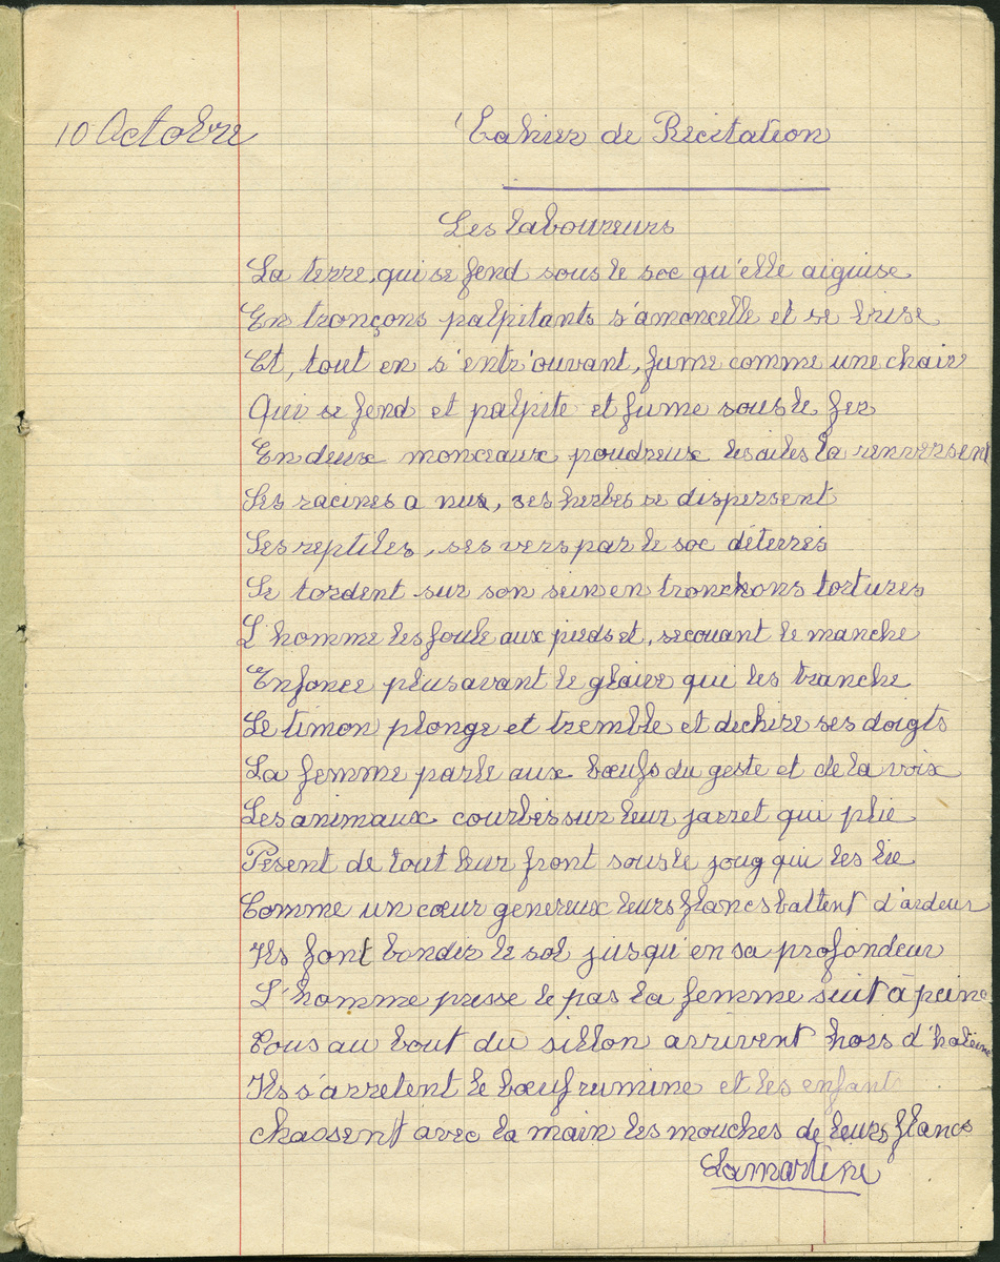 10 Octobre
Cahier de Récitation
Les laboureurs
La terre, qui se fend sous le soc qu'elle aiguise
En tronçons palpitants s'amoncelle et se brise
Et, tout en s'entr'ouvant, fume comme une chair
Qui se fend et palpite et fume sous le fer
En deux monceaux poudreux les ailes la renversent
Ses racines a nus, ses herbes se dispersent
Ses reptiles, ses vers par le soc déterrés
Se tordent sur son sein en tronchons tortures
L'homme les foule aux pieds et, secouant le manche
Enfonce plus avant le glaive qui les tranche
Le timon plonge et tremble et dechire ses doigts
La femme parle aux bœufs du geste et de la voix
Les animaux courbés sur leur jarret qui plie
Pèsent de tout leur front sous le joug qui les lie
Comme un cœur genereux leurs flancs battent d'ardeur
Ils font bondir le sol jusqu'en sa profondeur
L'homme presse le pas la femme suit à peine
Tous au bout du sillon arrivent hors d'haleine
Ils s'arretent le bœuf rumine et les enfants
chassent avec la main les mouches de leurs flancs
Lamartine